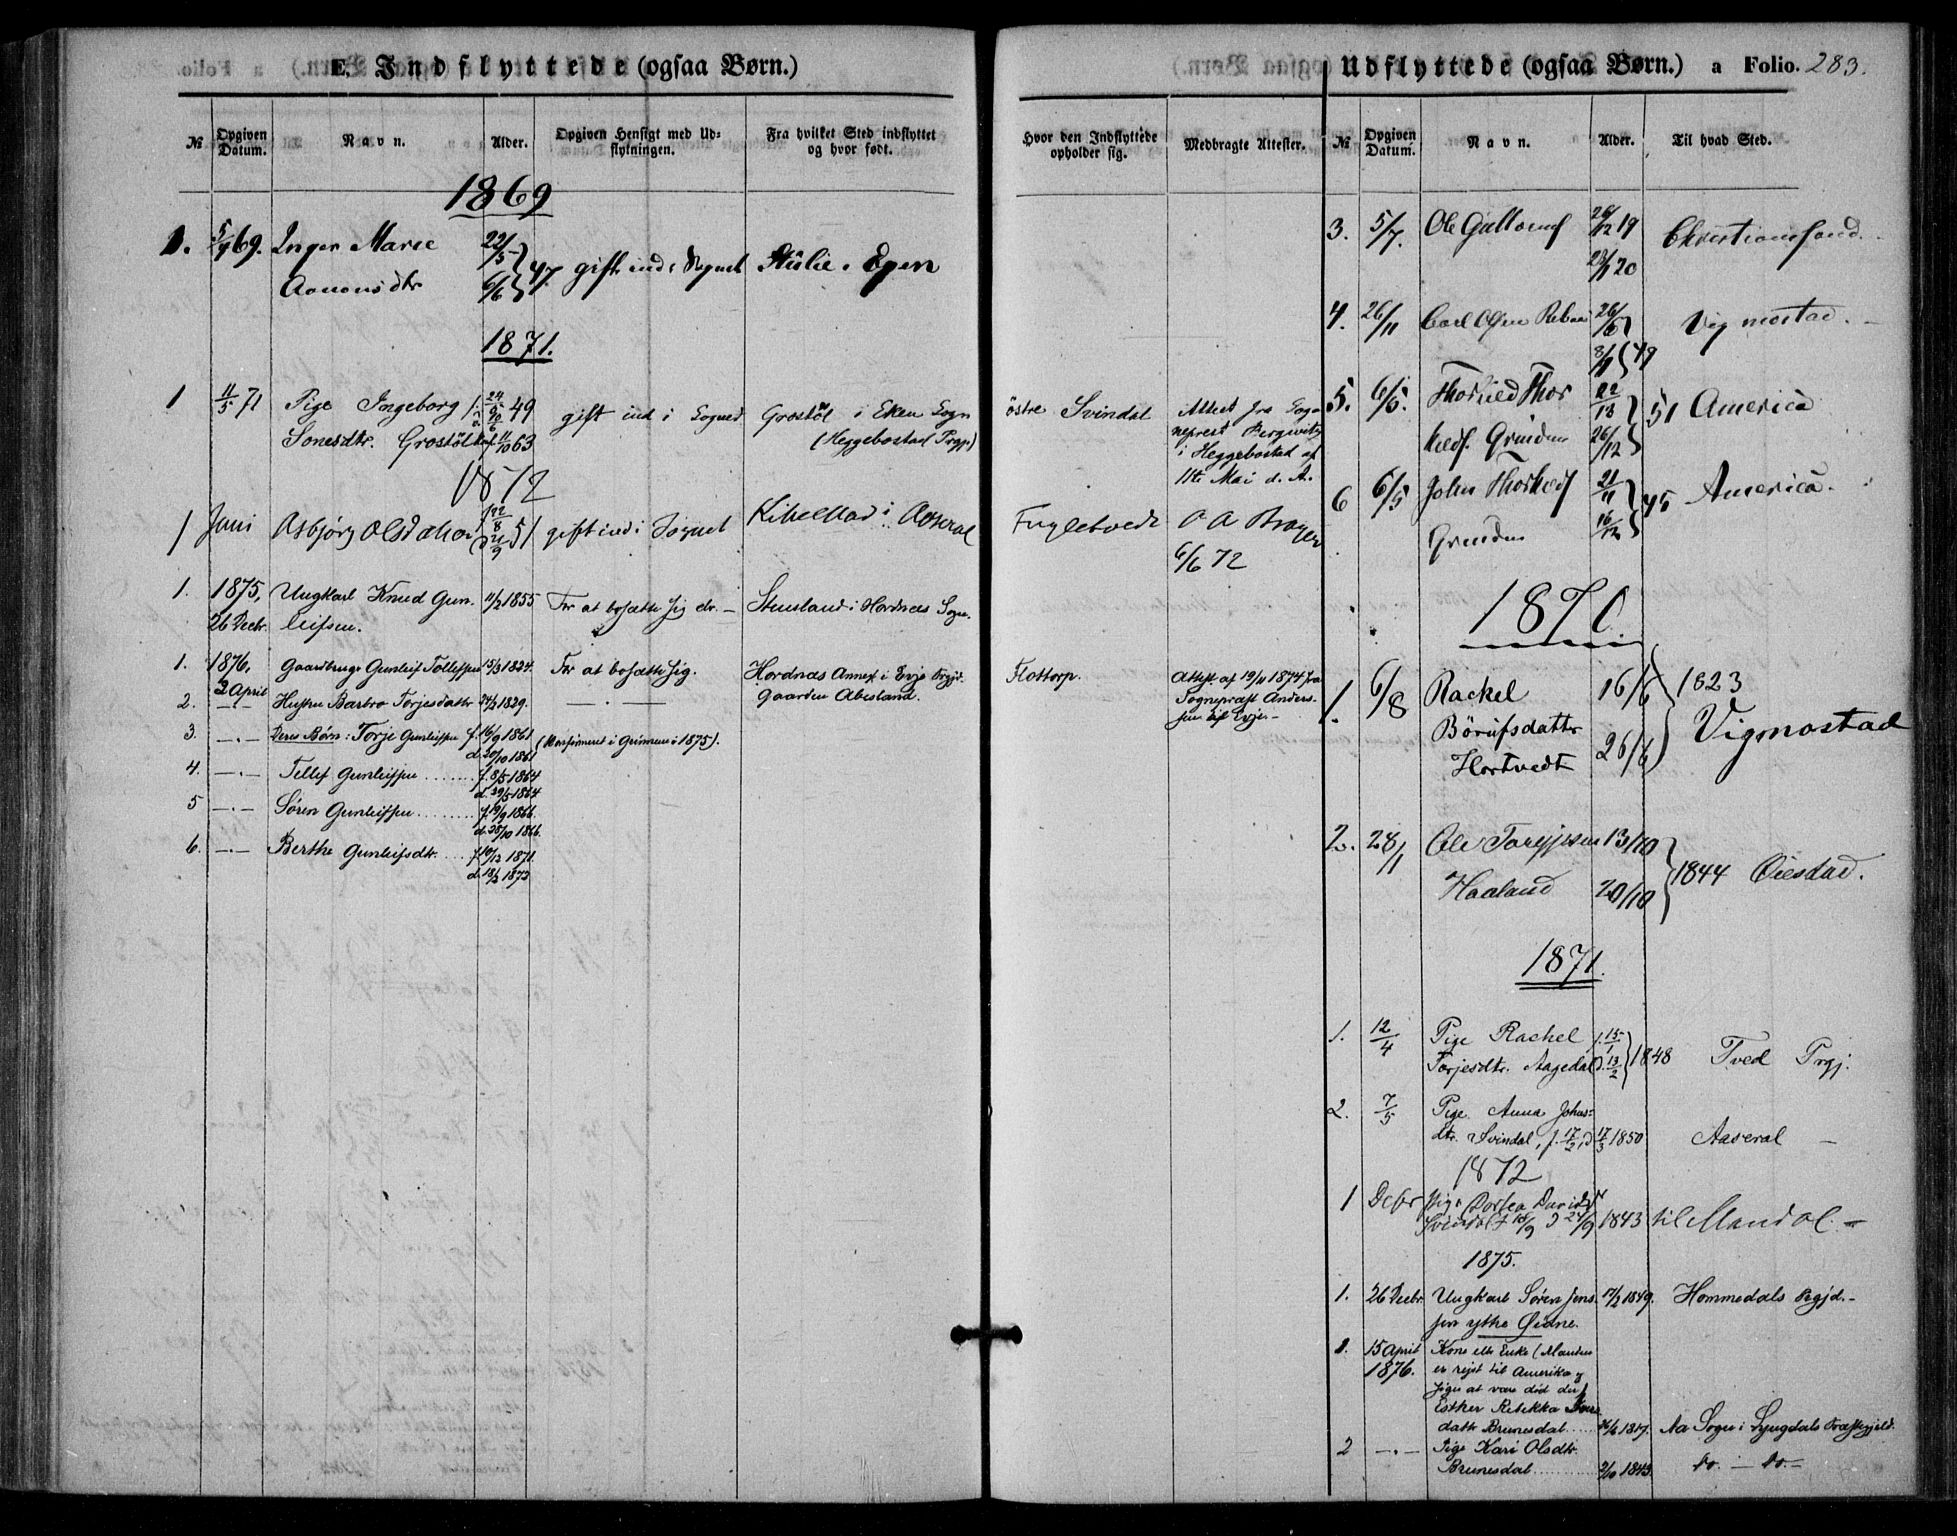 E. Indflyttede (ogsaa Børn.)
№ Opgiven Datum. Navn. Alder. Opgiven Hensigt med Udflytningen. Fra hvilket Sted indflyttet og hvor født.
1869
1. 5/7 69. Inger Marie 22/5 gift ind i Sognet Eken
Aanonsdtr 6/6 } 47
1871.
1 11/5 71 Pige Ingeborg f. 49 gift ind i Sognet Grostøl i Eken Sogn
Sonesdtr. Grostøl 63 (Heggebostad Prgj.)
1872
1 Juni Asbjørg Olsdatter 51 gift ind i Sognet i Aaseral
1. 1875, Ungkarl Knud Gun- 11/2 1855 For at bosætte sig der. – Stensland i Hordnæs Sogn.
26 Decbr. leifsen.
1. 1876, Gaardbruger Gunleif Tollefsen 15/3 1824. For at bosætte sig. Hordnæs Annex i Evje Prgjd.
2 April Gaarden Abesland.
2. –"– Hustru Barbro Torjesdatter 24/2 1829. — . —
3. –.– Deres Børn: Torje Gunleifsen f. 16/9 1861. (Konfirmeret i Grimene i 1875).
d. 20/10 1861
4. –.– Tellef Gunleifsen ........ f. 8/5 1864
d. 29/5 1864
5 –.– Søren Gunleifsen ......... f. 19/9 1866.
d. 28/10 1866.
6. –.– Berthe Gunleifsdtr. .... f. 10/12 1871.
d. 18/2 1872
Udflyttede (ogsaa Børn.) a Folio. 283.
Hvor den Indflyttede opholder sig. Medbragte Attester. № Opgiven Datum. Navn. Alder. Til hvad Sted.
3. 5/7. Ole 28/12 19 Christiansand.
28/1 20
4. 26/11 Carl Olsen 26/5 Vigmostad. –
8/11 } 49
østre Svindal Attest fra Sog-
neprest Bergwitz
i Heggebostad af
11te Mai d. A.
5. 6/5. 22/13 51 America
Grinden 26/12
6 6/5 John 21/11 } 45 America.
Grinden 16/12
Fuglestvedt O A
6/6 72
1870
Flottorp. Attest af 19/11 1874 fra
Sognepræst Anders-
sen af Evje. –
1. 6/8 Rachel 16/6 1823
Børufsdatter Vigmostad
Hortvedt 26/6
2. 28/1 Ole Torgjusen 13/10
Haaland 20/10 } 1844 Øiestad.
1871.
1. 12/4 Pige Rachel f. 15/1 } 1848 Tved Prgj.
Torjesdtr. Aagedal D. 13/2
2. 7/5 Pige Anna Johns-
dtr. Svindal, f. 17/2, d. 17/3 1850 Aaseral –
1872
1 Debr Pige Dortea Davidsd
Svindal f 18/9 D 24/9 1843 til Mandal. –
1875.
1. 26 Decbr. Ungkarl Søren Jens- 17/2 1849. Hommedals Prgjd. –
sen ytre Øidne.
1. 15 April Kone eller Enke (Manden
1876. er rejst til Amerika og
siges at være død der)
Esther Rebekka
datter Brunesdal ..... 26/6 1817. Aa Sogn i Lyngdals Præstegjeld.
2 –.– Pige Kari Olsdtr.
Brunesdal ......... 2/10 1843. Do. – Do. –